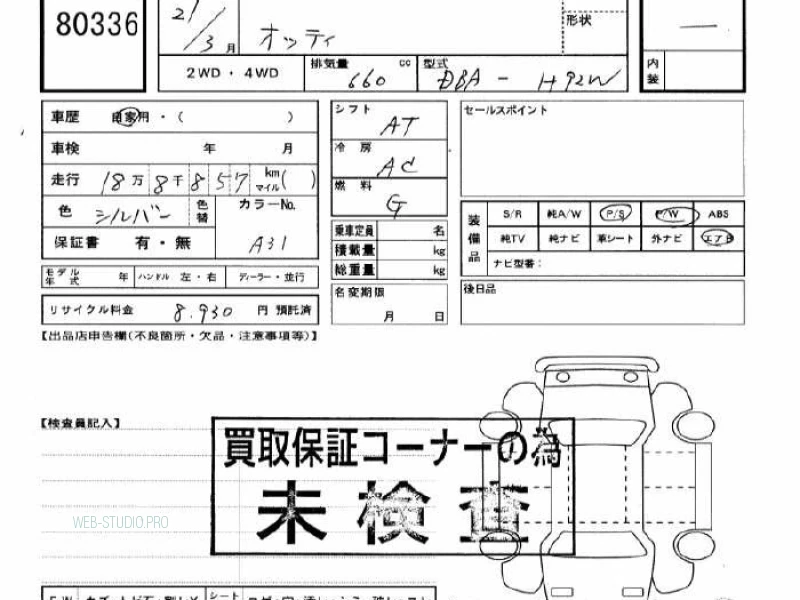 80336
21/3月
オッティ
形状
2WD・4WD
排気量 660 cc
型式 DBA - H92W
内装
車歴 自家用・( )
車検 年 月
走行 18万8千857 km マイル( )
色 シルバー 色替 カラーNo. A31
保証書 有・無
シフト AT
冷房 AC
燃料 G
乗車定員 名
積載量 kg
総重量 kg
名変期限 月 日
セールスポイント
装備品
S/R 純A/W P/S P/W ABS
純TV 純ナビ 革シート 外ナビ エアB
ナビ型番:
後日品
モデル年式 年 ハンドル 左・右 ディーラー・並行
リサイクル料金 8.930 円 預託済
【出品店申告欄(不良箇所・欠品・注意事項等)】
【検査員記入】
買取保証コーナーの為
未検査
WEB-STUDIO.PRO